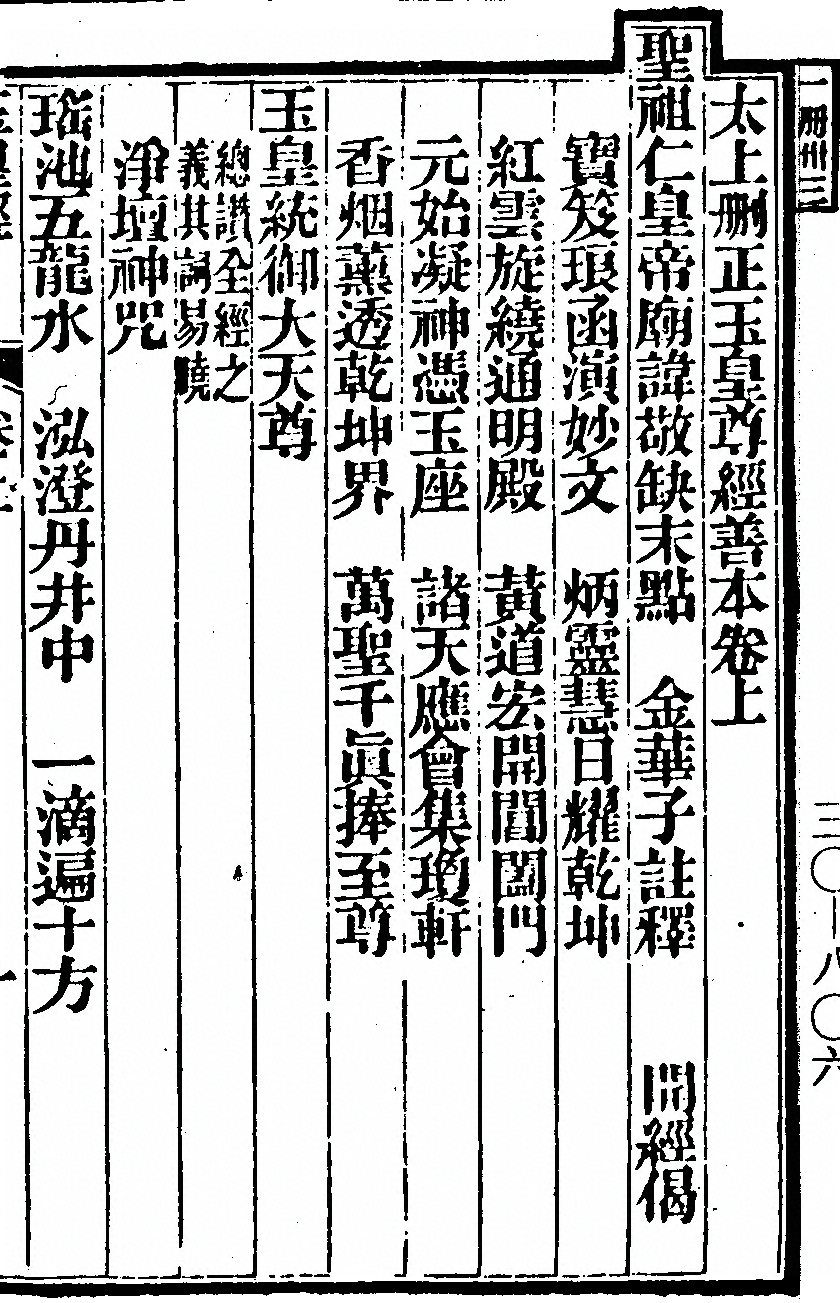 太上刪正玉皇尊經善本卷上
聖祖仁皇帝廟諱敬缺末點　金華子註釋　開經偈
寶笈琅函演妙文　炳靈慧日耀乾坤
紅雲旋繞通明殿　黃道宏開閶闔門
元始凝神憑玉座　諸天應會集瓊軒
香烟薰透乾坤界　萬聖千眞捧至尊
玉皇統御大天尊
總讚全經之
義其詞易曉
淨壇神咒
瑤池五龍水　泓澄丹井中　一滴遍十方
一冊卅三
三〇—八〇六